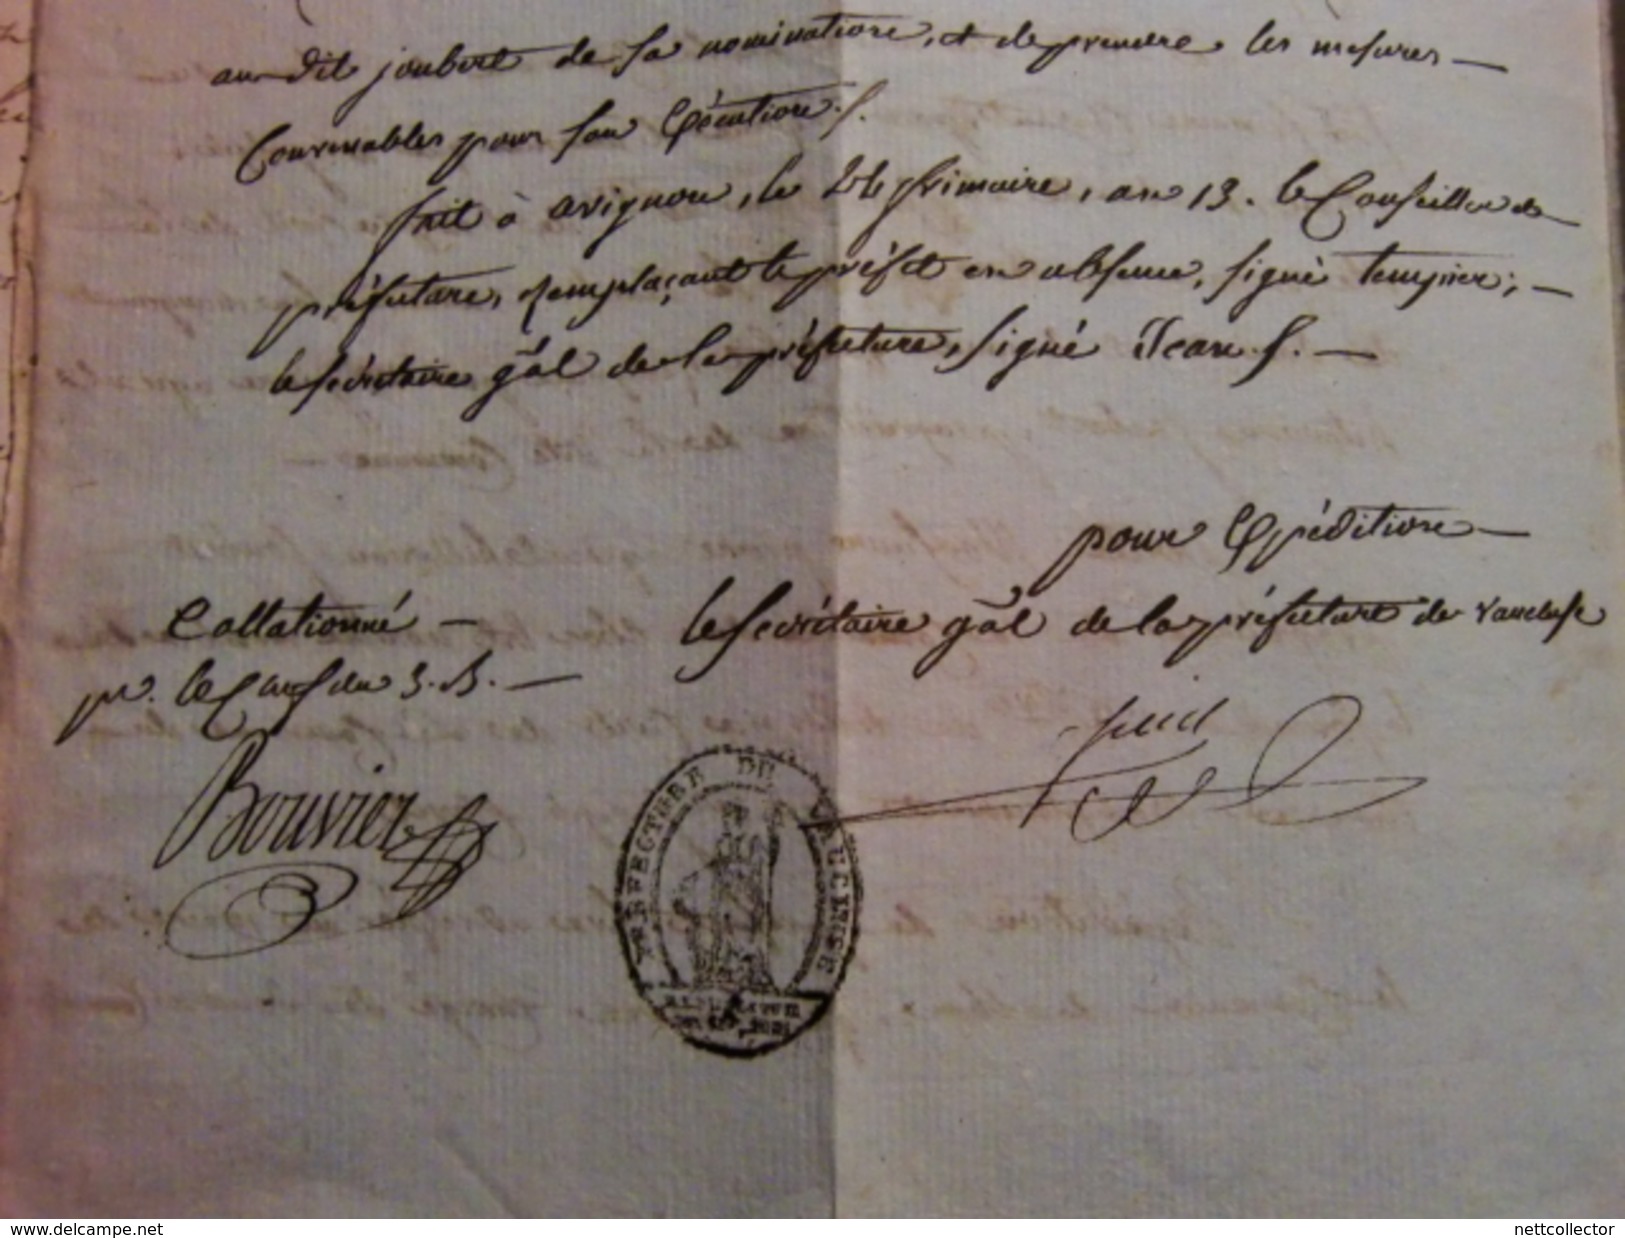 au dit joubert de sa nomination, et de prendre les mesures
Convenables pour son Exécution./.
fait à avignon, le 24 frimaire, an 13. le Conseiller de
préfecture, remplaçant le préfet en absence, signé tempier;
le secrétaire gāl de la préfecture, signé Jean./.
pour Expédition
Collationné
le Secrétaire gāl de la préfecture de vaucluse
pr. le Chef du 3. B.
Bouvier
PREFECTURE DE VAUCLUSE
www.delcampe.net
nettcollector